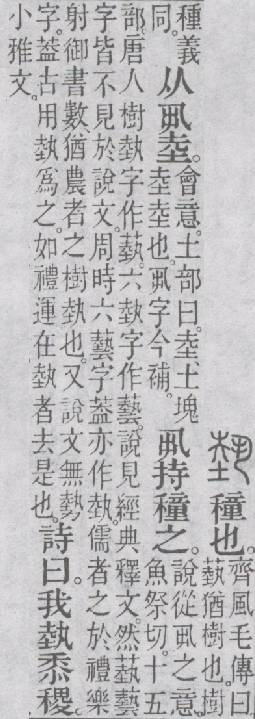 埶 穜也。齊風毛傳曰
蓺猶樹也。樹
種義
同。
从丮坴。
會意。土部曰。坴、土塊
坴坴也。丮字今補。
丮持穜之。
說從丮之意。
魚祭切。十五
部。唐人樹埶字作蓺。六埶字作藝。說見經典釋文。然蓺藝
字皆不見於說文。周時六藝字葢亦作埶。儒者之於禮樂
射御書數、猶農者之樹埶也。又說文無勢
字。葢古用埶爲之。如禮運在埶者去是也。
詩曰。我埶黍稷。
小雅文。